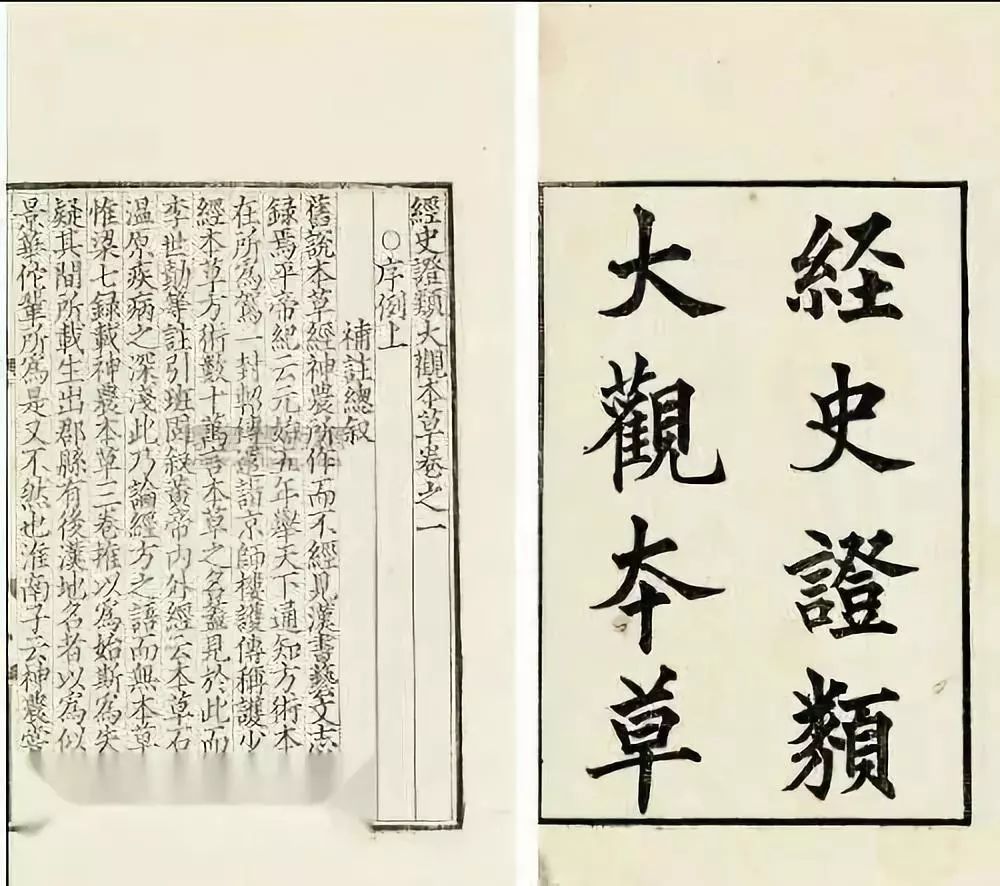 経史證類
大觀本草
經史證類大觀本草卷之一
○序例上
補註總叙
舊說本草經神農所作而不經見漢書藝文志
録焉平帝紀云元始五年舉天下通知方術本
在所為駕一封軺傳遣詣京師樓護傳稱護少
經本草方術數十萬言本草之名蓋見於此而
李世勣等註引班固叙黃帝内外經云本草石
温原疾病之深淺此乃論經方之語而無本草
惟梁七録載神農本草三卷推以為始斯為失
疑其間所載生出郡縣有後漢地名者以為似
景華佗輩所為是又不然也淮南子云神農嘗